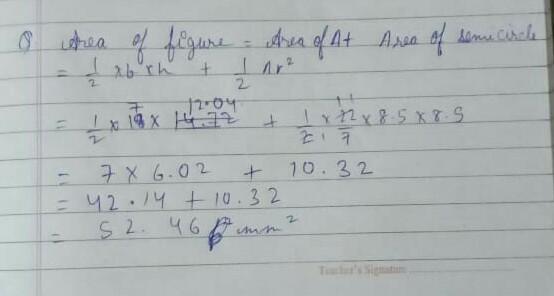 Q Area of figure = Area of Δ + Area of semicircle
= 1/2 × b × h + 1/2 πr²
7 12.04 11
= 1/2 × 18 × 14.72 + 1/2 × 22/7 × 8.5 × 8.5
1
= 7 × 6.02 + 10.32
= 42.14 + 10.32
= 52.46 mm²
Teacher's Signature